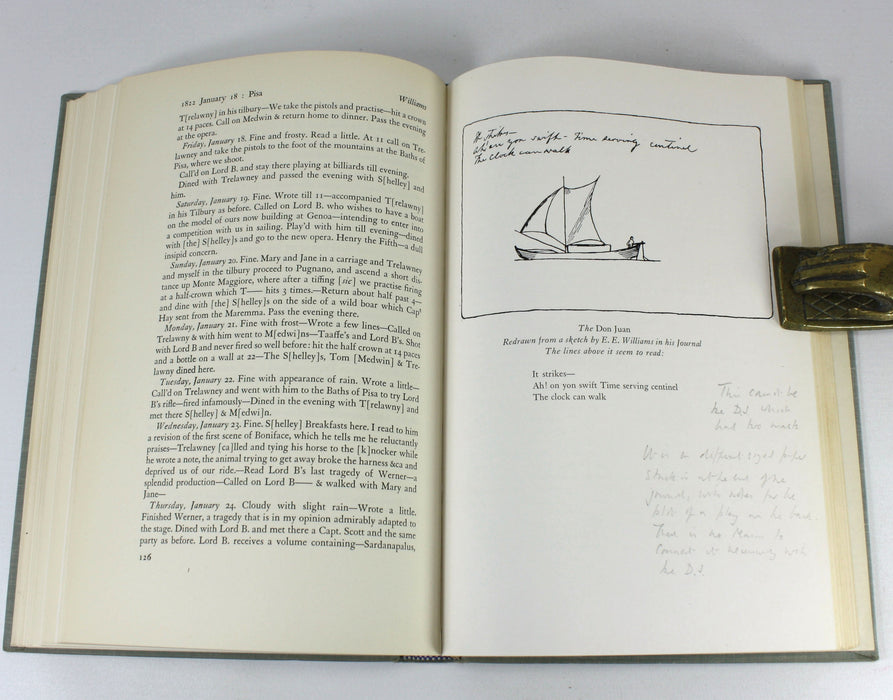 1822 January 18 : Pisa
Williams
T[relawny] in his tilbury—We take the pistols and practise—hit a crown
at 14 paces. Call on Medwin & return home to dinner. Pass the evening
at the opera.
Friday, January 18. Fine and frosty. Read a little. At 11 call on Tre-
lawney and take the pistols to the foot of the mountains at the Baths of
Pisa, where we shoot.
Call'd on Lord B. and stay there playing at billiards till evening.
Dined with Trelawney and passed the evening with S[helley] and
him.
Saturday, January 19. Fine. Wrote till 11—accompanied T[relawny]
in his Tilbury as before. Called on Lord B. who wishes to have a boat
on the model of ours now building at Genoa—intending to enter into
a competition with us in sailing. Play'd with him till evening—dined
with [the] S[helley]s and go to the new opera. Henry the Fifth—a dull
insipid concern.
Sunday, January 20. Fine. Mary and Jane in a carriage and Trelawney
and myself in the tilbury proceed to Pugnano, and ascend a short dis-
tance up Monte Maggiore, where after a tiffing [sic] we practise firing
at a half-crown which T—— hits 3 times.—Return about half past 4—
and dine with [the] S[helley]s on the side of a wild boar which Capt
Hay sent from the Maremma. Pass the evening there.
Monday, January 21. Fine with frost—Wrote a few lines—Called on
Trelawny & with him went to M[edwi]ns—Taaffe's and Lord B's. Shot
with Lord B and never fired so well before: hit the half crown at 14 paces
and a bottle on a wall at 22—The S[helley]s, Tom [Medwin] & Tre-
lawny dined here.
Tuesday, January 22. Fine with appearance of rain. Wrote a little—
Call'd on Trelawney and went with him to the Baths of Pisa to try Lord
B's rifle—fired infamously—Dined in the evening with T[relawny] and
met there S[helley] & M[edwi]n.
Wednesday, January 23. Fine. S[helley] Breakfasts here. I read to him
a revision of the first scene of Boniface, which he tells me he reluctantly
praises—Trelawney [ca]lled and tying his horse to the [k]nocker while
he wrote a note, the animal trying to get away broke the harness &ca and
deprived us of our ride.—Read Lord B's last tragedy of Werner—a
splendid production—Called on Lord B—— & walked with Mary and
Jane—
Thursday, January 24. Cloudy with slight rain—Wrote a little.
Finished Werner, a tragedy that is in my opinion admirably adapted to
the stage. Dined with Lord B. and met there a Capt. Scott and the same
party as before. Lord B. receives a volume containing—Sardanapalus,
126
It strikes—
Ah! on yon swift - Time serving centinel
The clock can walk
The Don Juan
Redrawn from a sketch by E. E. Williams in his Journal
The lines above it seem to read:
It strikes—
Ah! on yon swift Time serving centinel
The clock can walk
This cannot be
the D.J. which
had two masts
It is on different sized paper
stuck in at the end of the
journal, with notes for the
plot of a play on the back.
There is no reason to
connect it necessarily with
the D.J.